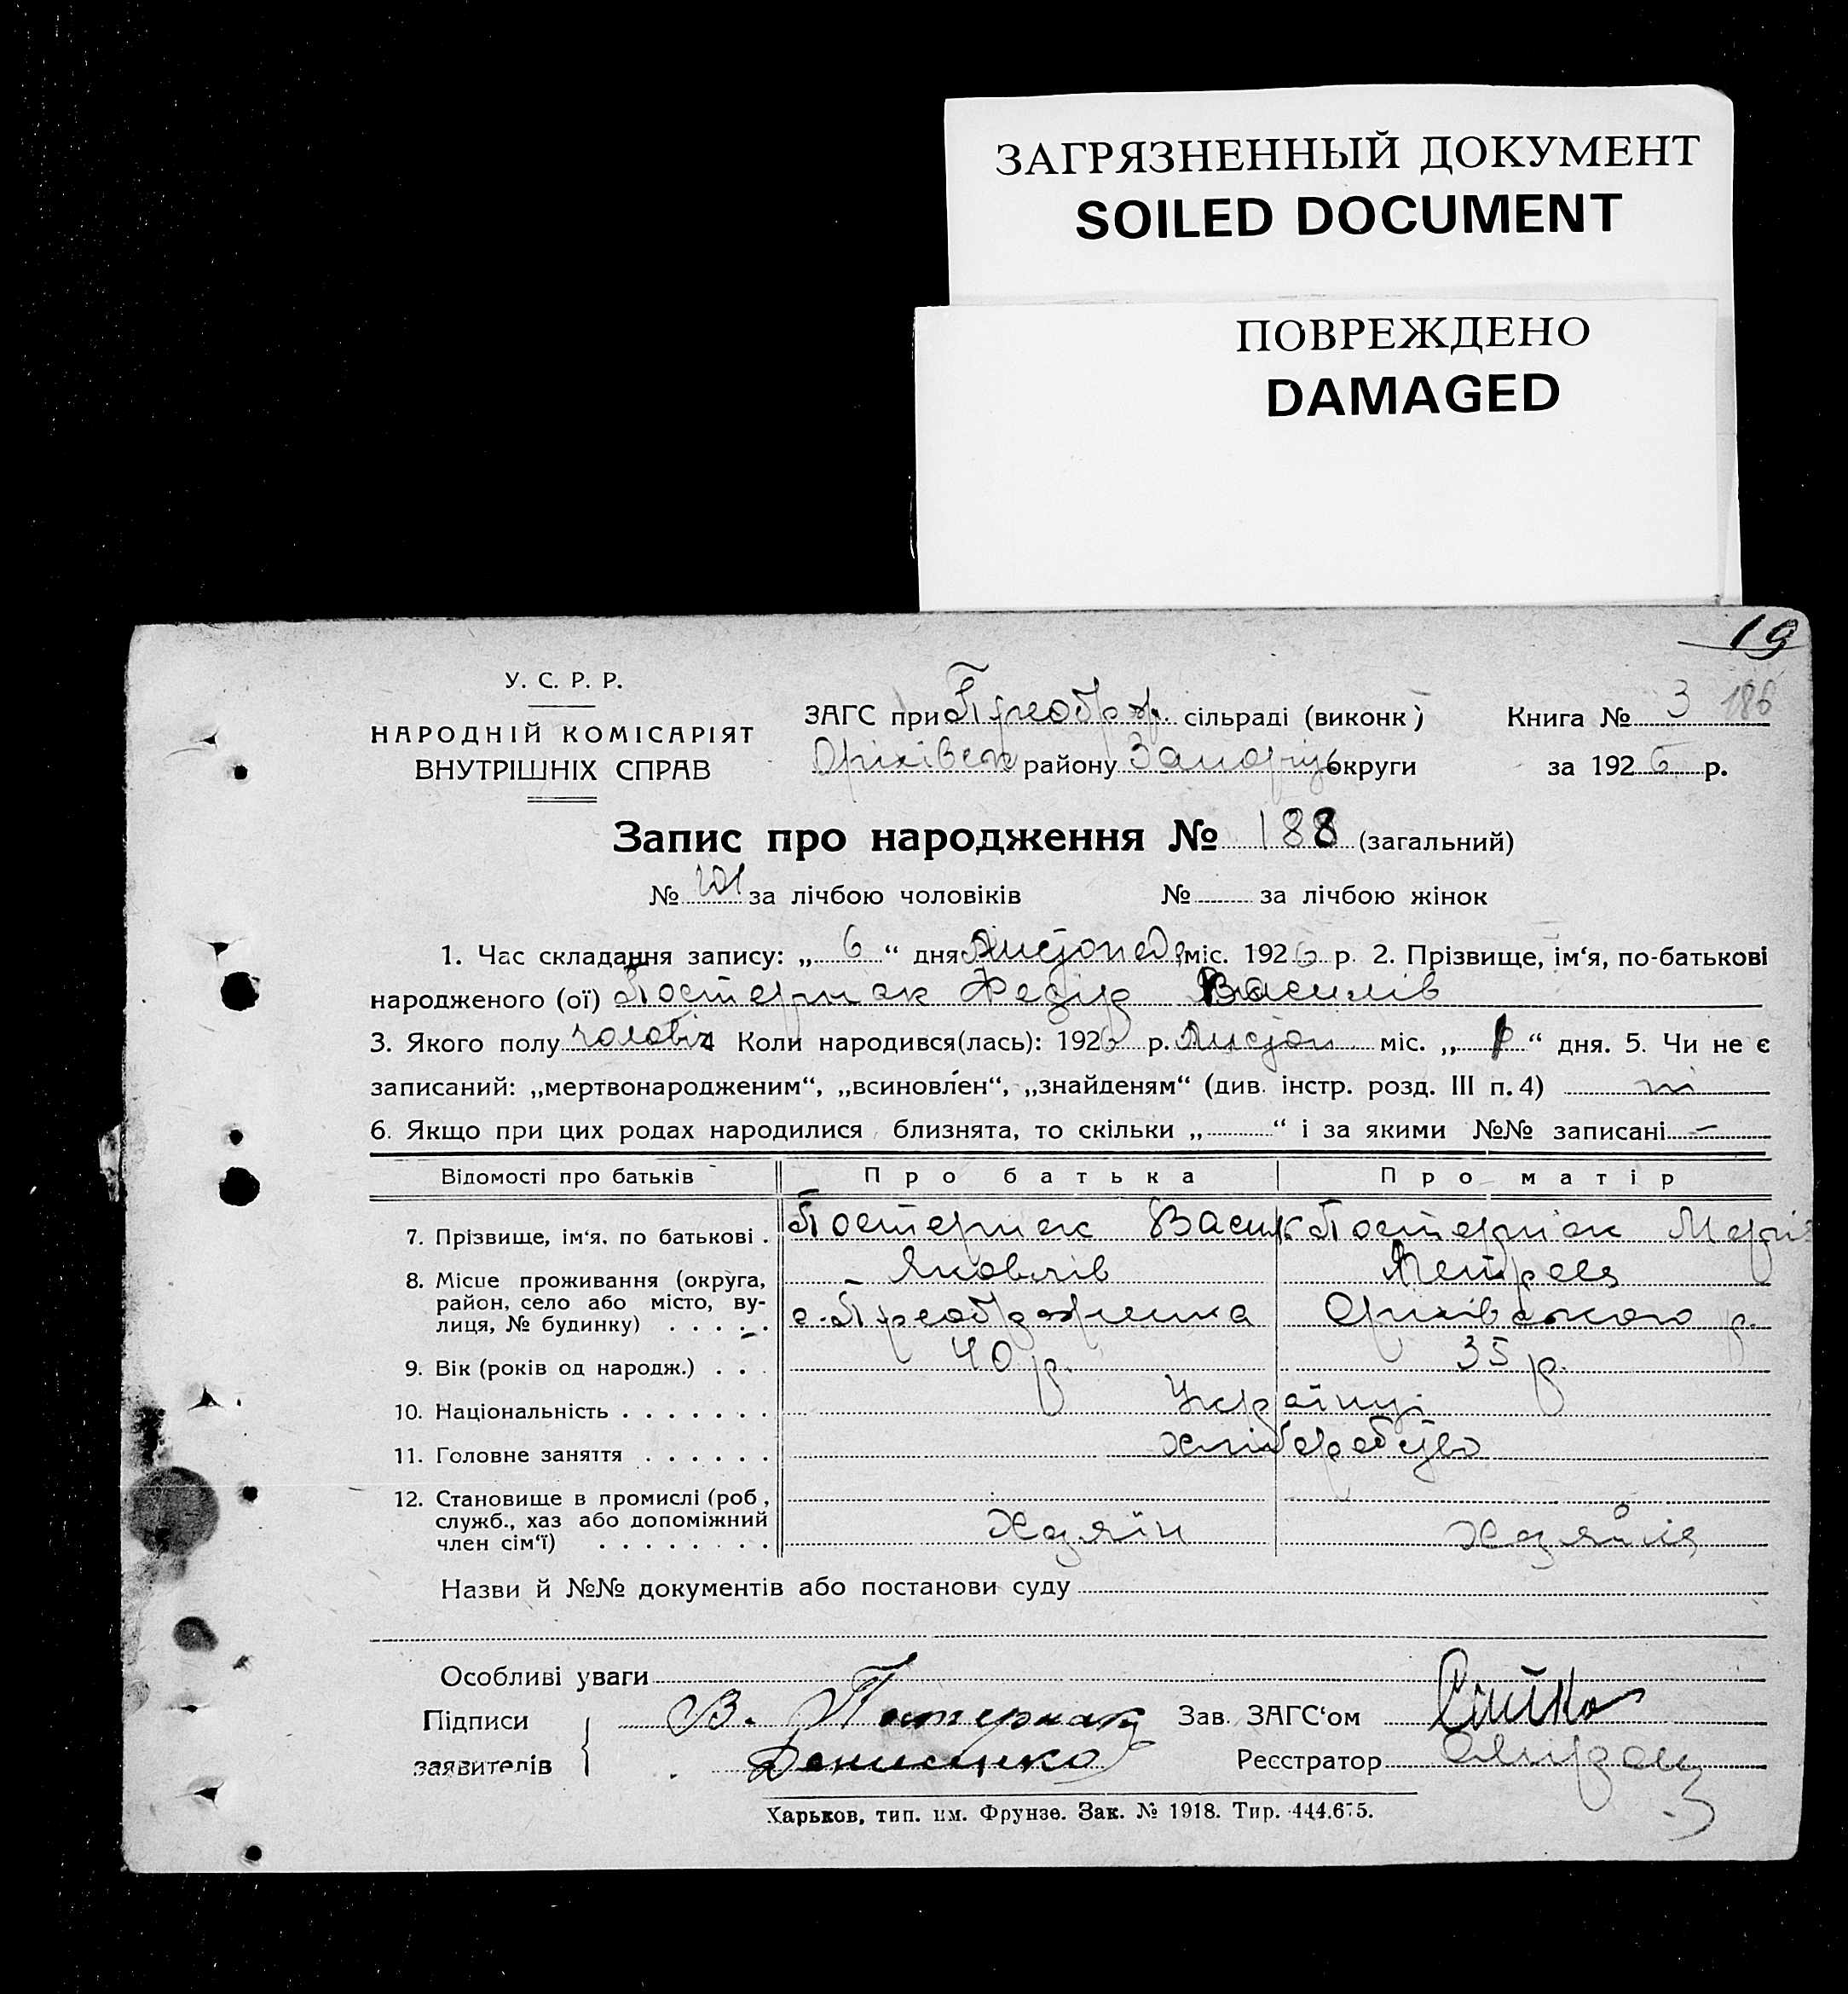 ЗАГРЯЗНЕННЫЙ ДОКУМЕНТ
SOILED DOCUMENT
ПОВРЕЖДЕНО
DAMAGED
19
У. С. Р. Р.
НАРОДНІЙ КОМІСАРІЯТ
ВНУТРІШНІХ СПРАВ
ЗАГС при Преображ. сільраді (виконк)
Книга № 3 186
Оріхівськ району Запоріз округи
за 1926 р.
Запис про народження № 188 (загальний)
№ 101 за лічбою чоловіків № за лічбою жінок
1. Час складання запису: „ 6 “ дня Листопада міс. 1926 р. 2. Прізвище, ім‘я, по-батькові
народженого (ої) Постернак Федір Василів
3. Якого полу чоловіч 4 Коли народився(лась): 1926 р. Листоп міс. „ “ дня. 5. Чи не є
записаний: „мертвонародженим“, „всиновлен“, „знайденям“ (див. інстр. розд. III п. 4) ні
6. Якщо при цих родах народилися близнята, то скільки „ “ і за якими №№ записані —
Відомості про батьків Про батька Про матір
7. Прізвище, ім‘я, по батькові . Постернак Василь Постернак Марія
Яковлів Петрова
8. Місце проживання (округа, район, село або місто, вулиця, № будинку) . . . . . с. Преображенка Оріхівського р.
9. Вік (років од народж.) . . . 40 р. 35 р.
10. Національність . . . . . . . Українці
11. Головне заняття . . . . . . хліборобство
12. Становище в промислі (роб, служб., хаз або допоміжний член сім‘ї) . . . . . . . . Хазяїн Хазяйка
Назви й №№ документів або постанови суду
Особливі уваги
Підписи заявителів { В. Постернак
Денисенко
Зав. ЗАГС‘ом
Реєстратор
Харьков, тип. им. Фрунзе. Зак. № 1918. Тир. 444.675.